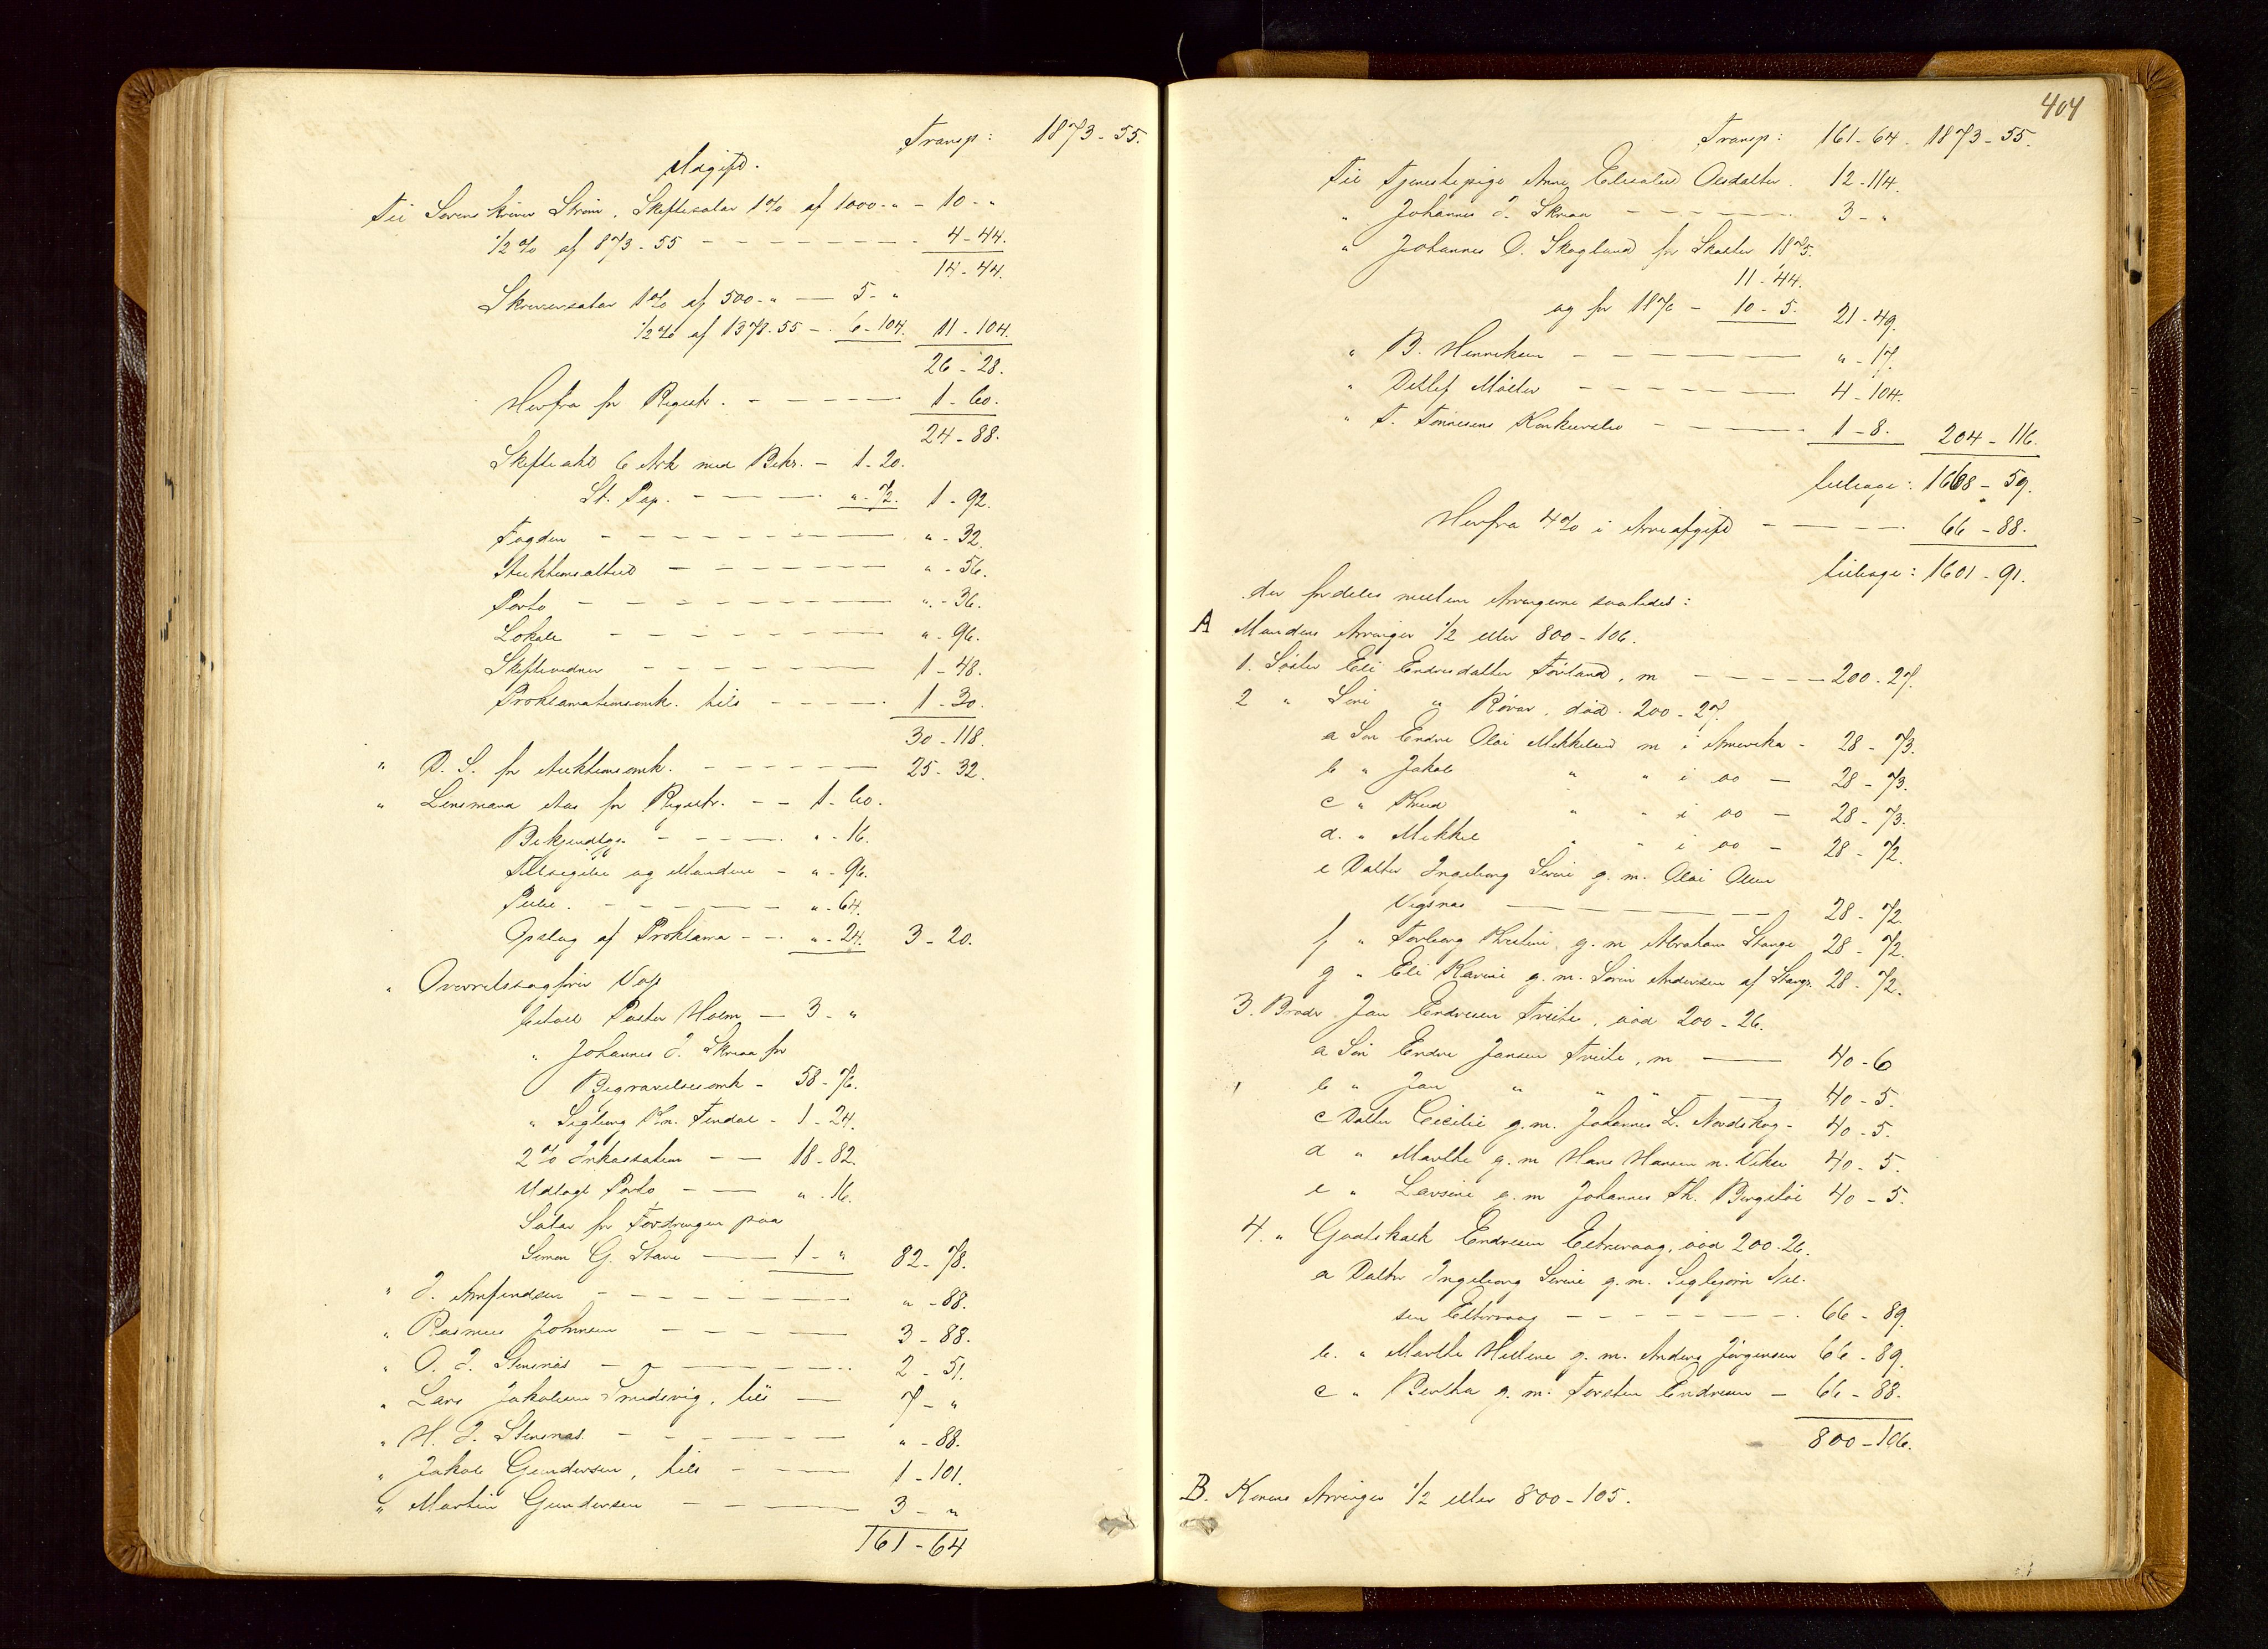 Transp: 1873 - 55.
Udgift.
Til Sorenskriver Strøm, Skiftesalar 1% af 1000 - " - 10 - "
1/2 % af 873 - 55 - 4 - 44.
14 - 44.
Skriversalar 1% af 500 - " - 5 - "
1/2 % af 1373 - 55 - 6 - 104. 11 - 104.
26 - 28.
Herfra for Registr. - 1 - 60.
24 - 88.
Skifteakt 6 Ark med Bekr. - 1 - 20.
St. Pap. - " - 72. 1 - 92.
Fogden - " - 32.
Auktionsattest - " - 56.
Porto - " - 36.
Lokale - " - 96.
Skiftevidner - 1 - 48.
Proklamationsomk. tils - 1 - 30.
30 - 118.
" D. S. for Auktionsomk. - 25 - 32.
" Lensmand Aas for Registr. - 1 - 60.
- " - 16.
Tilsigelse og Mændene - " - 96.
- " - 64.
Opslag af Proklama - " - 24. 3 - 20.
" Overretssagfører
betalt Pastor Holm - 3 - "
" Johannes J. Skreaa for
Begravelsesomk - 58 - 76.
" Sigbjørg Kn. Tindal - 1 - 24.
2 % Inkassation - 18 - 82.
Udlagt Porto - " - 16.
Salar for Fordringen paa
Simon G. Stave - 1 - " 82 - 78.
" J. Amundsen - " - 88.
" Rasmus Johnsen - 3 - 88.
" O. J. Stensnæs - 2 - 51.
" Lars Jakobsen Smedsvig, tils - 7 - "
" H. J. Stensnæs - " - 88.
" Jakob Gundersen, tils - 1 - 101.
" Martin Gundersen - 3 - "
161 - 64
404
Transp: 161 - 64. 1873 - 55.
Til Tjenestepige Anne Elisabet Olsdatter. 12 - 114.
" Johannes J. Skreaa - 3 - "
" Johannes O. Skogland for Skatter 1875.
11 - 44.
og for 1876 - 10 - 5. 21 - 49.
" B. Henriksen - " - 17.
" Detlef Møller - 4 - 104.
" T. Tønnesens Konkursbo - 1 - 8. 204 - 116.
tilbage: 1668 - 59.
Herfra 4% i Arveafgift - 66 - 88.
tilbage: 1601 - 91.
der fordeles mellem Arvingerne saaledes:
A Mandens Arvinger 1/2 eller 800 - 106.
1. Søster Eli Endresdatter Førland, m - 200 - 27.
2 " Siri " Røvær, død. 200 - 27.
a Søn Endre Olai Mikkelsen m i Amerika - 28 - 73.
b " Jakob " " i do - 28 - 73.
c " Knud " " i do - 28 - 73.
d. " Mikkel " " i do - 28 - 72.
e Datter Ingeborg Serine g. m. Olai Olsen
Vigsnæs - 28 - 72.
f " Torborg Kristine g. m Abraham Stange 28 - 72.
g " Eli Karine g. m. Søren Andersen af Stavgr. 28 - 72.
3. Broder Jan Endresen Tveite, død 200 - 26.
a Søn Endre Jansen Tveite, m - 40 - 6
b " Jan " " " - 40 - 5.
c Datter Cecilie g. m. Johannes L. Nordskog - 40 - 5.
d " Marthe g. m Hans Hansen n. Vikse 40 - 5.
e " Lavsine g. m Johannes Th. Bergstøl 40 - 5.
4. " Godtskalk Endresen Eltravaag, død 200 - 26.
a Datter Ingeborg Serine g. m. Sigbjørn Nil-
sen Eltravaag - 66 - 89.
b. " Marthe Helene g. m. Anders Jørgensen 66 - 89.
c " Bertha g. m. Torsten Endresen - 66 - 88.
800 - 106.
B. Konens Arvinger 1/2 eller 800 - 105.